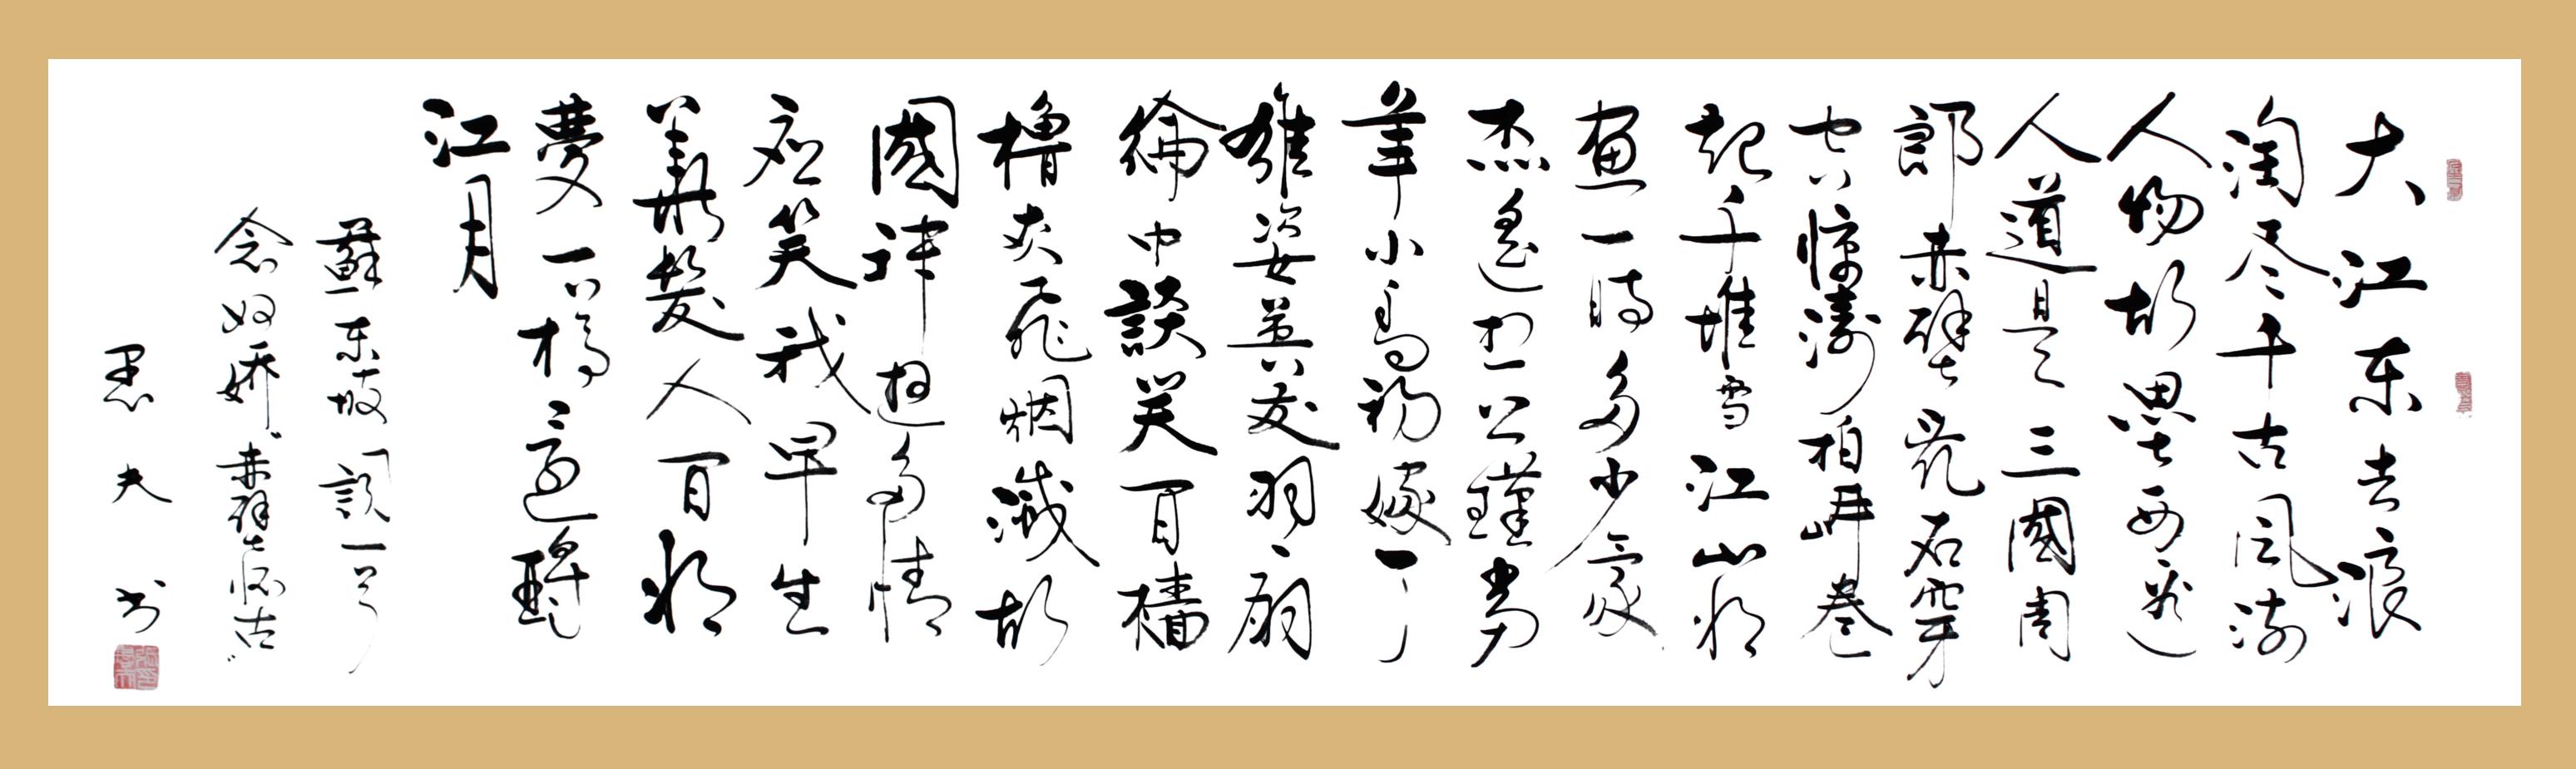 大江东去浪
淘尽千古风流
人物故垒西边
人道是三國周
郎赤壁乱石穿
空惊涛拍岸卷
起千堆雪江山如
画一时多少豪
杰遥想公瑾当
年小乔初嫁了
雄姿英发羽扇
綸巾談笑间檣
櫓灰飞烟滅故
國神遊多情
应笑我早生
華髮人间如
夢一樽還酹
江月
蘇东坡「詞一首
念奴娇"赤壁怀古"
夫书